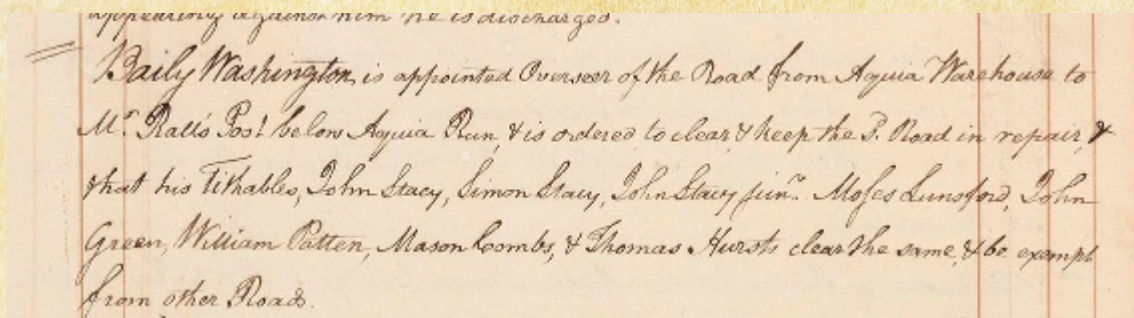 appearing against him he is discharged.
Baily Washington is appointed Overseer of the Road from Aquia Warehouse to
Mr. Ralls Post below Aquia Run, & is ordered to clear & keep the Sd. Road in repair, &
that his Tithables, John Stacy, Simon Stacy, John Stacy junr. Moses Lunsford, John
Green, William Patten, Mason Combs, & Thomas Hursts clear the same, & be exempt
from other Roads.